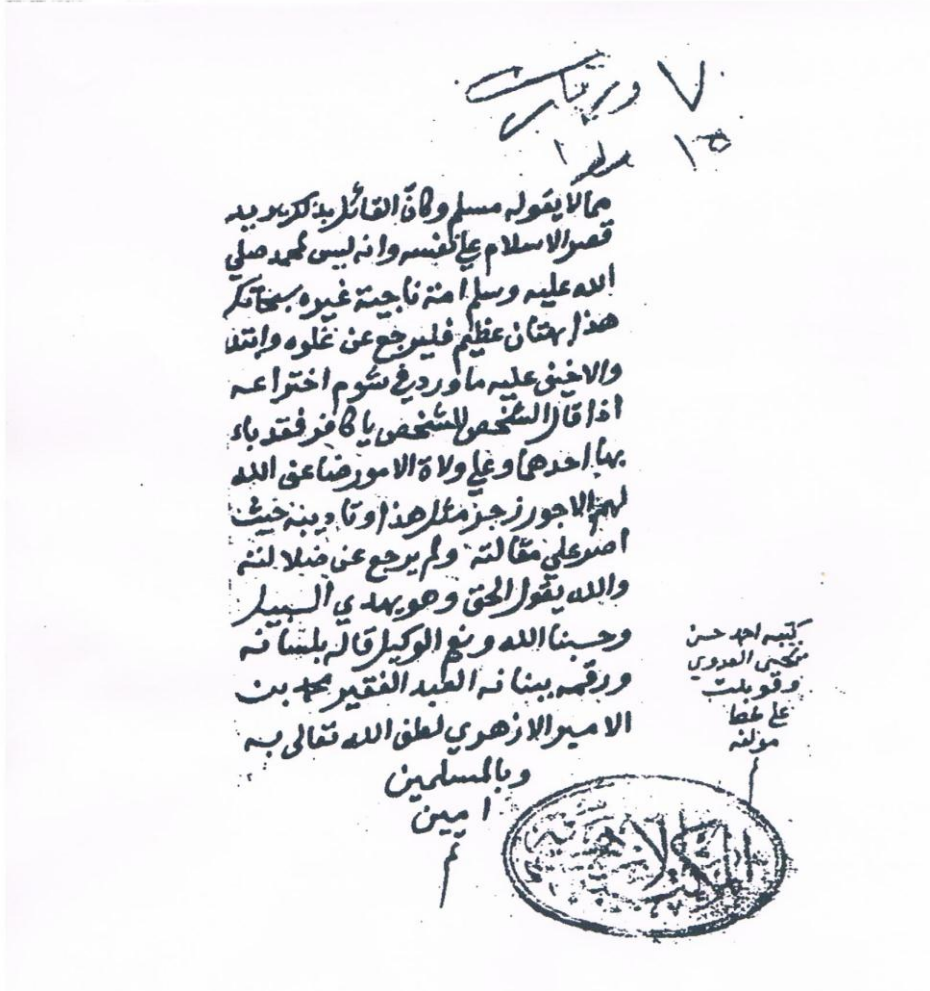 ٧ ورقات
١٥ سطرا
مما لا يقوله مسلم وكان القائل بذلك يريد
قصر الاسلام علي نفسه وانه ليس لمحمد صلي
الله عليه وسلم امة ناجية غيره سبحانك
هذا بهتان عظيم فليرجع عن غلوه
والا خيف عليه ما ورد في شوم اختراعه
اذا قال الشخص للشخص يا كافر فقد باء
بها احدهما وعلي ولاة الامور ضاعف الله
لهم الاجور زجر مثل هذا وتاديبه حيث
اصر علي مقالته ولم يرجع عن ضلالته
والله يقول الحق وهو يهدي السبيل
وحسبنا الله ونعم الوكيل قاله بلسانه
ورقمه ببنانه العبد الفقير محمد بن
الامير الازهري لطف الله تعالى به
وبالمسلمين
امين
كتبه احمد حسن
العدوي
وقوبلت
علي خط
مولفه